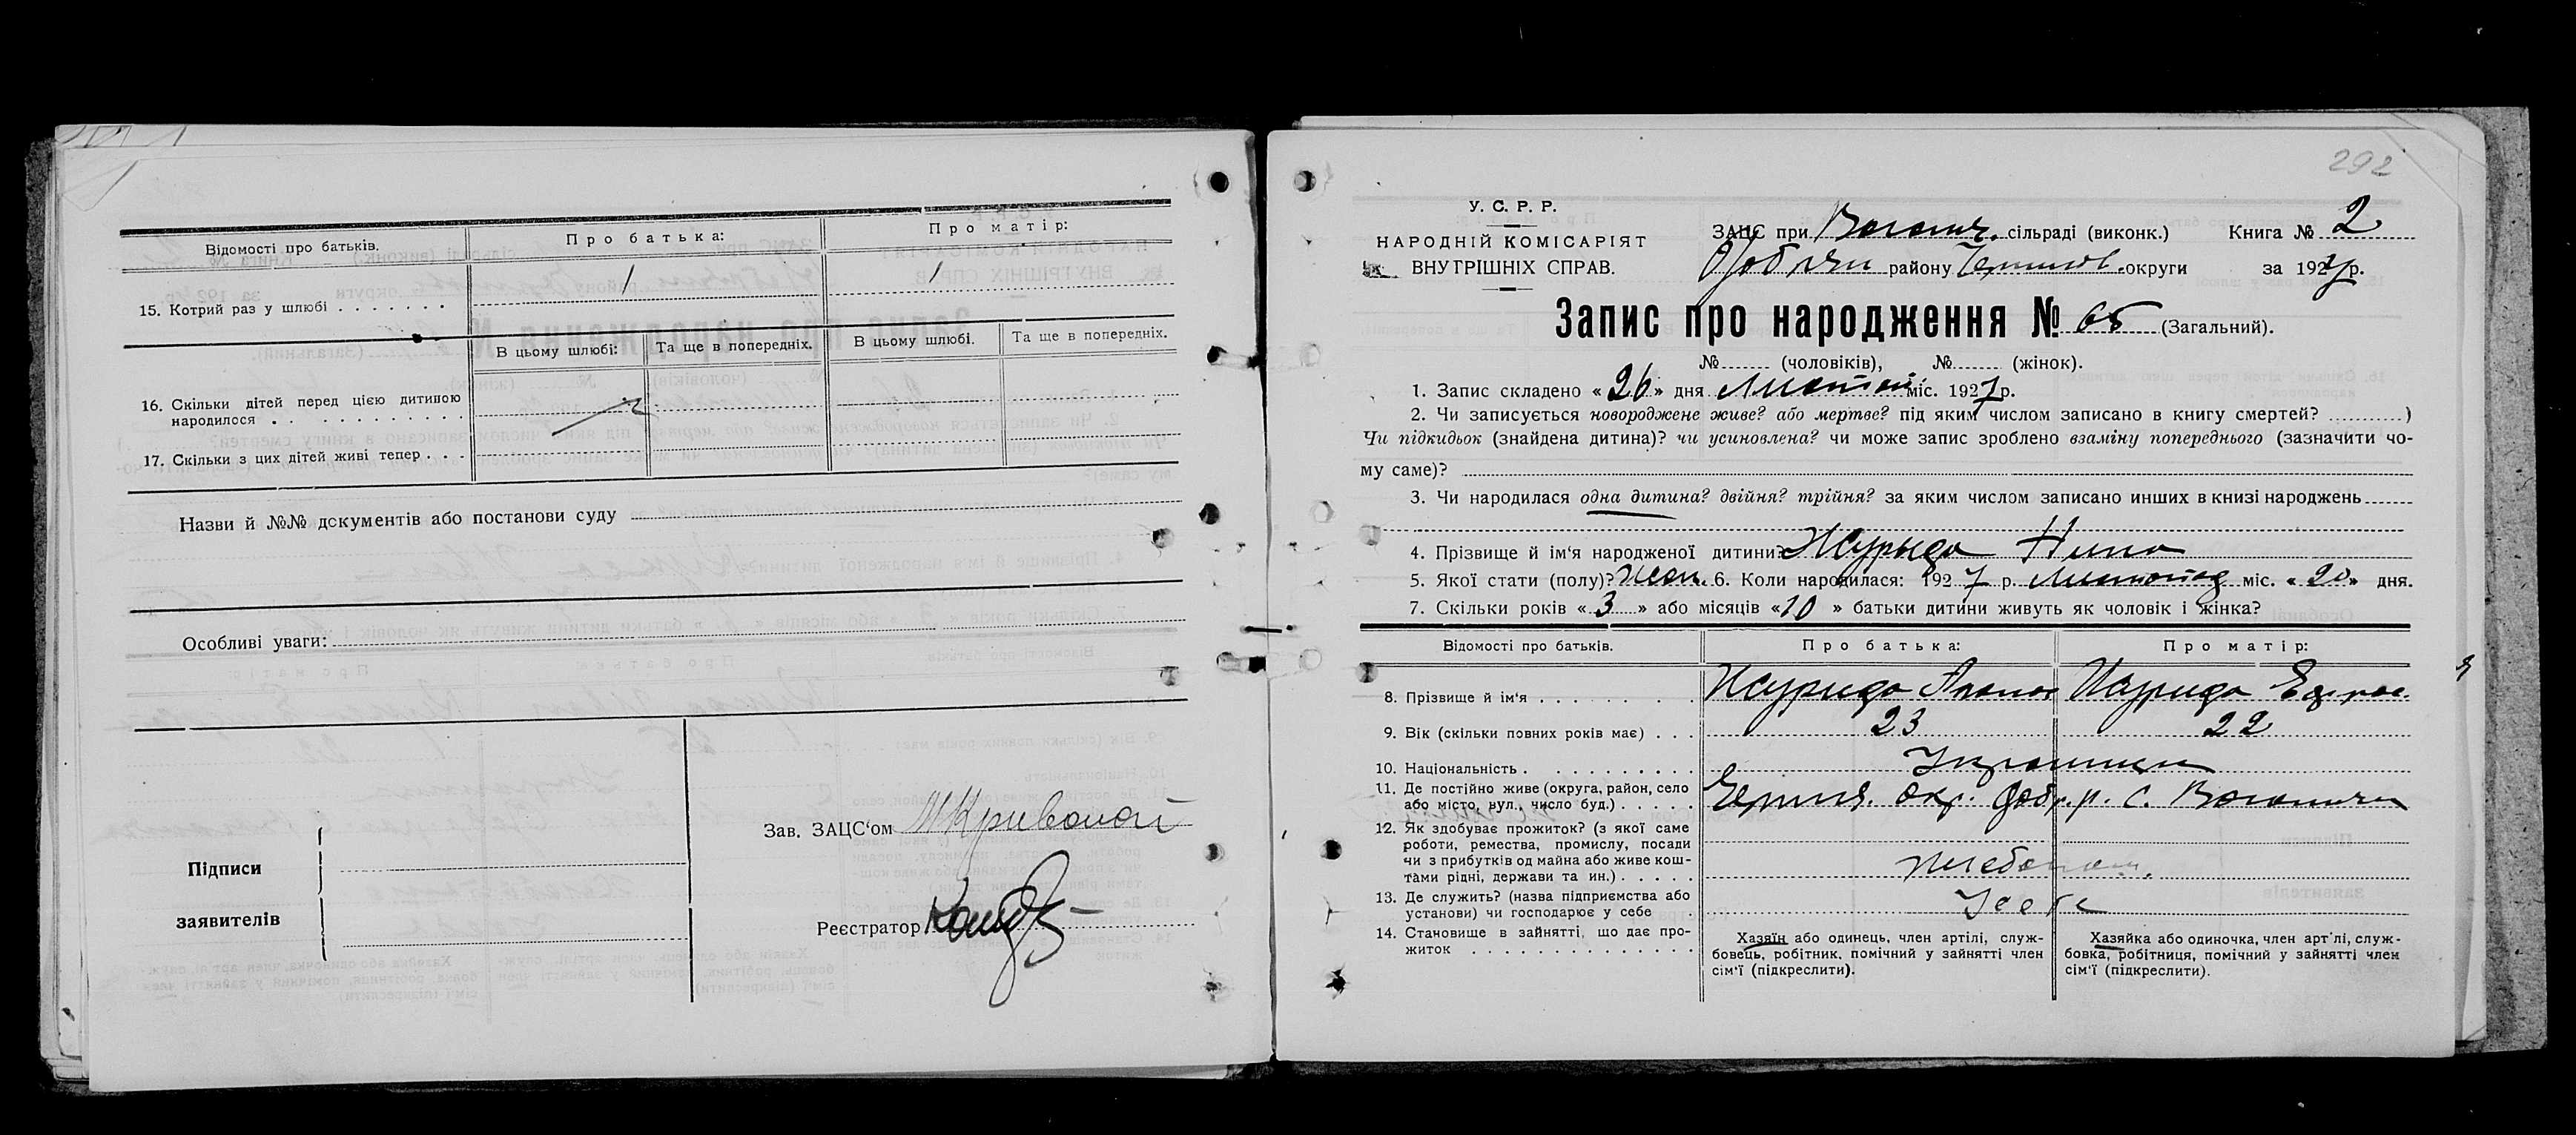 Відомості про батьків. Про батька: Про матір:
15. Котрий раз у шлюбі . . . . . . . 1 1
В цьому шлюбі: Та ще в попередніх. В цьому шлюбі. Та ще в попередніх.
16. Скільки дітей перед цією дитиною
народилося . . . . . . . . . . .
17. Скільки з цих дітей живі тепер . . .
Назви й №№ документів або постанови суду
Особливі уваги:
Зав. ЗАЦС'ом Кривопой
Підписи
заявителів
Реєстратор
292
У. С. Р. Р.
НАРОДНІЙ КОМІСАРІЯТ
ВНУТРІШНІХ СПРАВ.
ЗАЦС при сільраді (виконк.) Книга № 2
району округи за 1927 р.
Запис про народження № 65 (Загальний).
№ (чоловіків), № (жінок).
1. Запис складено «26» дня міс. 1927 р.
2. Чи записується новороджене живе? або мертве? під яким числом записано в книгу смертей? )
Чи підкидьок (знайдена дитина)? чи усиновлена? чи може запис зроблено взаміну попереднього (зазначити чо-
му саме)?
3. Чи народилася одна дитина? двійня? трійня? за яким числом записано инших в книзі народжень
4. Прізвище й ім'я народженої дитини? Журыда Нина
5. Якої стати (полу)? Жен. 6. Коли народилася: 1927 р. Листопад міс. «20» дня.
7. Скільки років «3» або місяців «10» батьки дитини живуть як чоловік і жінка?
Відомості про батьків. Про батька: Про матір:
8. Прізвище й ім'я . . . . . . . . Журида Журида
9. Вік (скільки повних років має) . . . 23 22
10. Національність . . . . . . . . . .
11. Де постійно живе (округа, район, село
або місто, вул., число буд.) . . . . . окр. р. с.
12. Як здобуває прожиток? (з якої саме
роботи, ремества, промислу, посади
чи з прибутків од майна або живе кош-
тами рідні, держави та ин.) . . . . .
13. Де служить? (назва підприємства або
установи) чи господарює у себе . У себе
14. Становище в зайнятті, що дає про-
житок . . . . . . . . . . . . . .
Хазяїн або одинець, член артілі, служ-
бовець, робітник, помічний у зайнятті член
сім'ї (підкреслити).
Хазяйка або одиночка, член арт'лі, служ-
бовка, робітниця, помічний у зайнятті член
сім'ї (підкреслити).